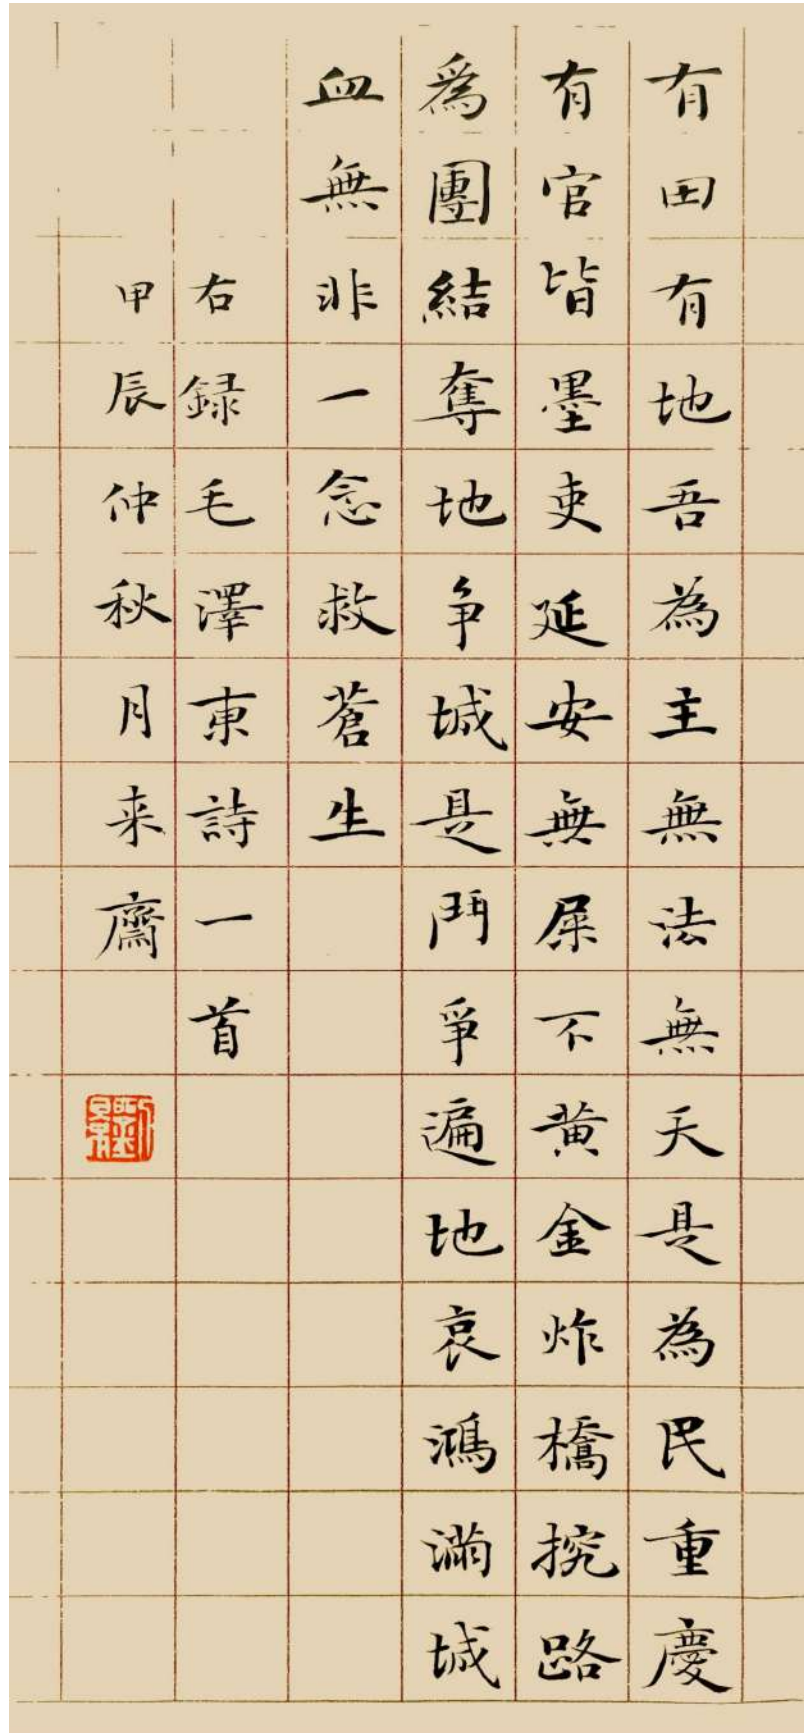 有田有地吾為主無法無天是為民重慶
有官皆墨吏延安無屎不黄金炸橋挖路
爲團結奪地争城是鬥爭遍地哀鴻滿城
血無非一念救蒼生
右録毛澤東詩一首
甲辰仲秋月来齋